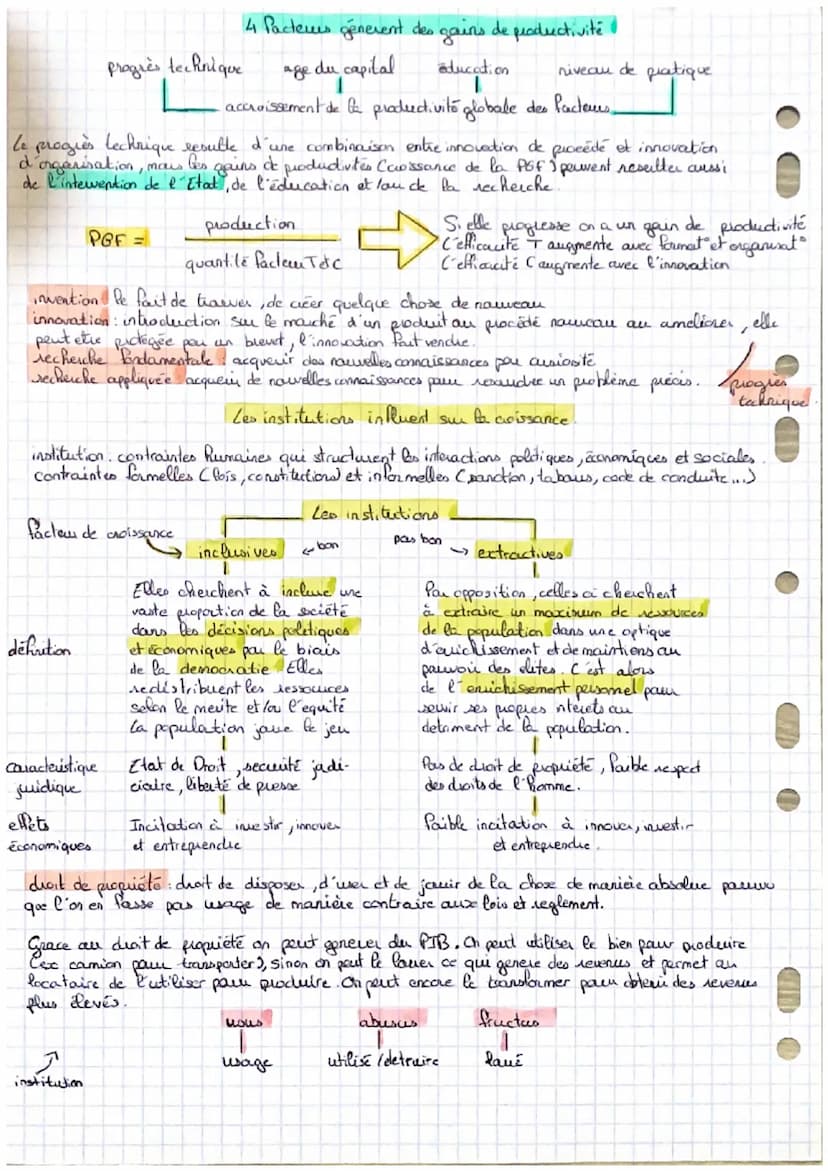 4 Facteurs génèrent des gains de productivité
progrès technique age du capital éducation niveau de pratique
accroissement de la productivité globale des facteurs
Le progrès technique resulte d'une combinaison entre innovation de procédé et innovation
d'organisation, mais les gains de productivités (croissance de la PGF) peuvent resulter aussi
de l'intervention de l'Etat, de l'éducation et/ou de la recherche.
PGF = production
quantité facteur T&C
Si elle progresse on a un gain de productivité
L'efficacité T augmente avec format° et organisat°
L'efficacité C augmente avec l'innovation
invention : le fait de trouver, de créer quelque chose de nouveau
innovation : introduction sur le marché d'un produit ou procédé nouveau ou améliorer, elle
peut etre protégée par un brevet, l'innovation faut vendre.
recherche fondamentale : acquerir des nouvelles connaissances par curiosité
recherche appliquée acquerir de nouvelles connaissances pour resoudre un problème précis.
progrès
technique
Les institutions influent sur la croissance.
institution : contraintes humaines qui structurent les interactions politiques, économiques et sociales.
contraintes formelles (lois, constitutions) et informelles (sanction, tabous, code de conduite...)
Les institutions
facteur de croissance
inclusives bon pas bon extractives
définition
Elles cherchent à inclure une
vaste proportion de la société
dans les décisions politiques
et économiques par le biais
de la democratie. Elles
redistribuent les ressources
selon le merite et/ou l'equité
La population joue le jeu
Par opposition, celles ci cherchent
à extraire un maximum de ressources
de la population dans une optique
d'enrichissement et de maintiens au
pouvoir des elites. C'est alors
de l'enrichissement personnel pour
servir ses propres interets au
detriment de la population.
caractéristique
juridique
Etat de Droit, securité judi-
ciaire, liberté de presse
Pas de droit de propriété, faible respect
des droits de l'homme.
effets
économiques
Incitation à investir, innover
et entreprendre
Faible incitation à innover, investir
et entreprendre.
droit de propriété : droit de disposer, d'user et de jouir de la chose de manière absolue pourvu
que l'on en fasse pas usage de manière contraire aux lois et reglement.
Grace au droit de propriété on peut generer du PIB. On peut utiliser le bien pour produire
(ex camion pour transporter), sinon on peut le louer ce qui genere des revenus et permet au
locataire de l'utiliser pour produire. On peut encore le transformer pour obtenir des revenus
plus élevés.
usus abusus fructus
usage utilisé/detruire loué
institution